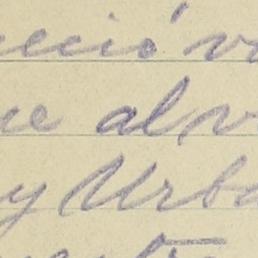 ecció v
ue al v
y Urba